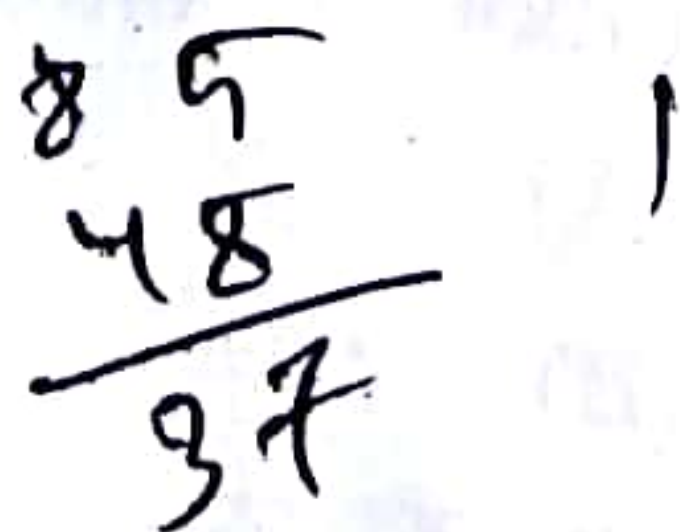 85 1
48
37